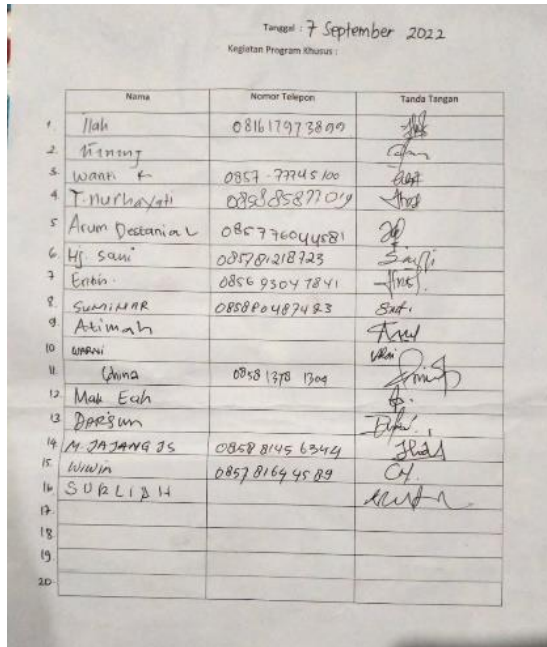 Tanggal : 7 September 2022
Kegiatan Program Khusus :
Nama Nomor Telepon Tanda Tangan
1. Ilah 081617973899
2. Nining
3. Wanti
4. T. Nurhayati
5 Arum Destania L 085776044581
6. Hj. Sani 085781218723
7 Enbh. 0856 9304 7841
8. SUMIMAR 085880487483
9. Atimah
10 WARNI
11. 0858 1378 1309
12 Mak Eah
13 DARSUM
14 M. JAJANG JS 0858 8145 6344
15. WIWIN 0857 8164 4589
16 SURLIAH
17.
18
19
20